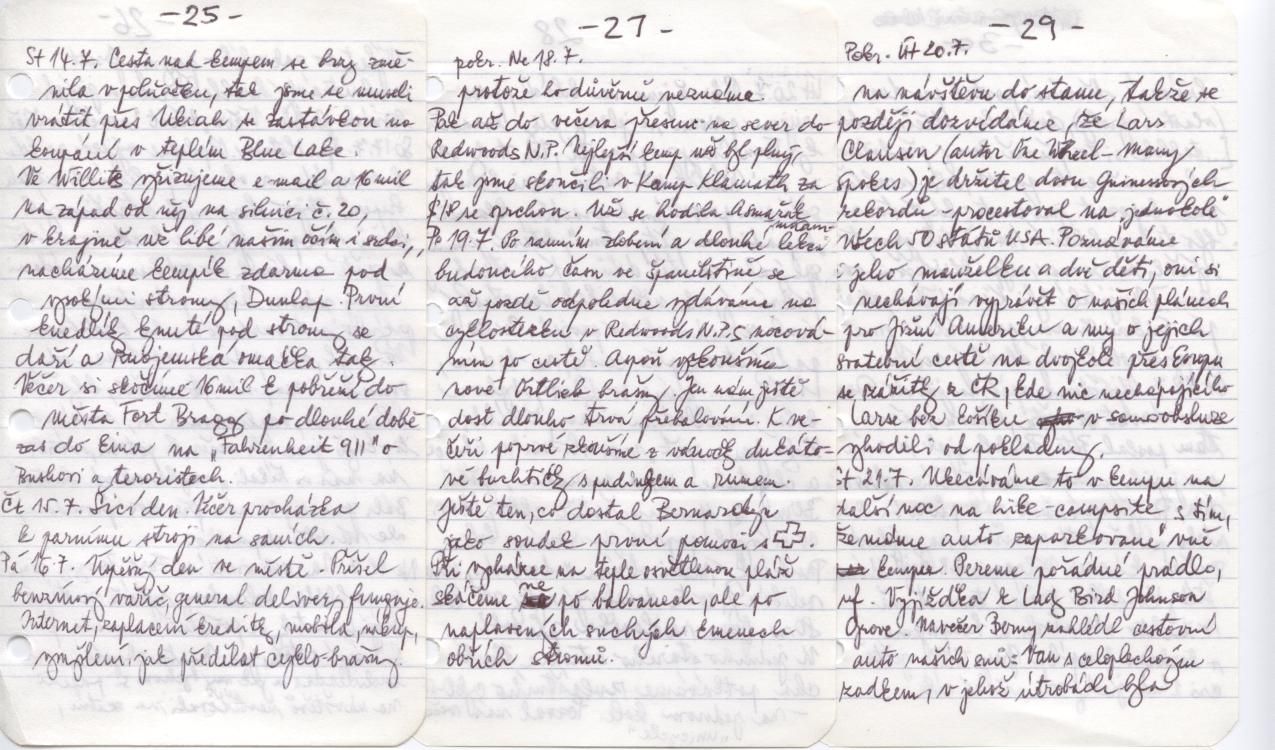 -25-
St 14.7. Cesta nad kempem se brzy změ-
nila v polňačku, tak jsme se museli
vrátit přes Ukiah se zastávkou na
koupání v teplém Blue Lake.
Ve Willits vyřizujeme e-mail a 16 mil
na západ od něj na silnici č. 20,
v krajině už libé našim očím i srdci,
nacházíme kempík zdarma pod
vysokými stromy, Dunlap. První
knedlík knutý pod stromy se
daří a Podjemská omáčka taky.
Večer si skočíme 16 mil k pobřeží do
města Fort Bragg po dlouhé době
zas do kina na „Fahrenheit 911" o
Bushovi a teroristech.
Čt 15.7. Šicí den. Večer procházka
k parnímu stroji na saních.
Pá 16.7. Úspěšný den ve městě. Přišel
benzínový vařič, general delivery funguje.
Internet, zaplacení kreditky, mobila, nákup,
vymýšlení, jak předělat cyklo-brašny.
-27-
pokr. Ne 18.7.
protože to důvěrně neznáme.
Pak až do večera přesun na sever do
Redwoods N.P. Nejlepší kemp už byl plný,
tak jsme skončili v Kamp Klamath za
$18 se sprchou. Už se hodila.
Po 19.7. Po ranním zlobení a dlouhé lekci
budoucího času ve španělštině se
až pozdě odpoledne vydáváme na
cyklostezku v Redwoods N.P. s nocová-
ním po cestě. Aspoň vyzkoušíme
nové Ortlieb brašny. Jen nám ještě
dost dlouho trvá přebalování. K ve-
čeři poprvé zkoušíme z vánočky dukáto-
vé buchtičky s pudingem a rumem.
Ještě ten, co dostal Bernardýn
jako soudek první pomoci s
Při vycházce na teple osvětlenou pláž
skáčeme ne po balvanech, ale po
naplavených suchých kmenech
obřích stromů.
-29-
Pokr. Út 20.7.
na návštěvu do stanu, takže se
později dozvídáme, že Lars
Clausen (autor One Wheel - Many
Spokes) je držitel dvou Guinessových
rekordů - procestoval na „jednokole"
všech 50 států USA. Poznáváme
i jeho manželku a dvě děti, oni si
nechávají vyprávět o našich plánech
pro Jižní Ameriku a my o jejich
svatební cestě na dvojkole přes Evropu
se zážitky z ČR, kde nic nechápajícího
Larse bez košíku v samoobsluze
vyhodili od pokladny.
St 21.7. Ukecáváme to v kempu na
další noc na hike-campsite s tím,
že máme auto zaparkované „vně"
kempu. Pereme pořádné prádlo,
uf. Vyjížďka k Lady Bird Johnson
Grove. Navečer Bernyy nahlédl cestovní
auto našich snů: Van s celoplechovým
zadkem, v jehož útrobách byla